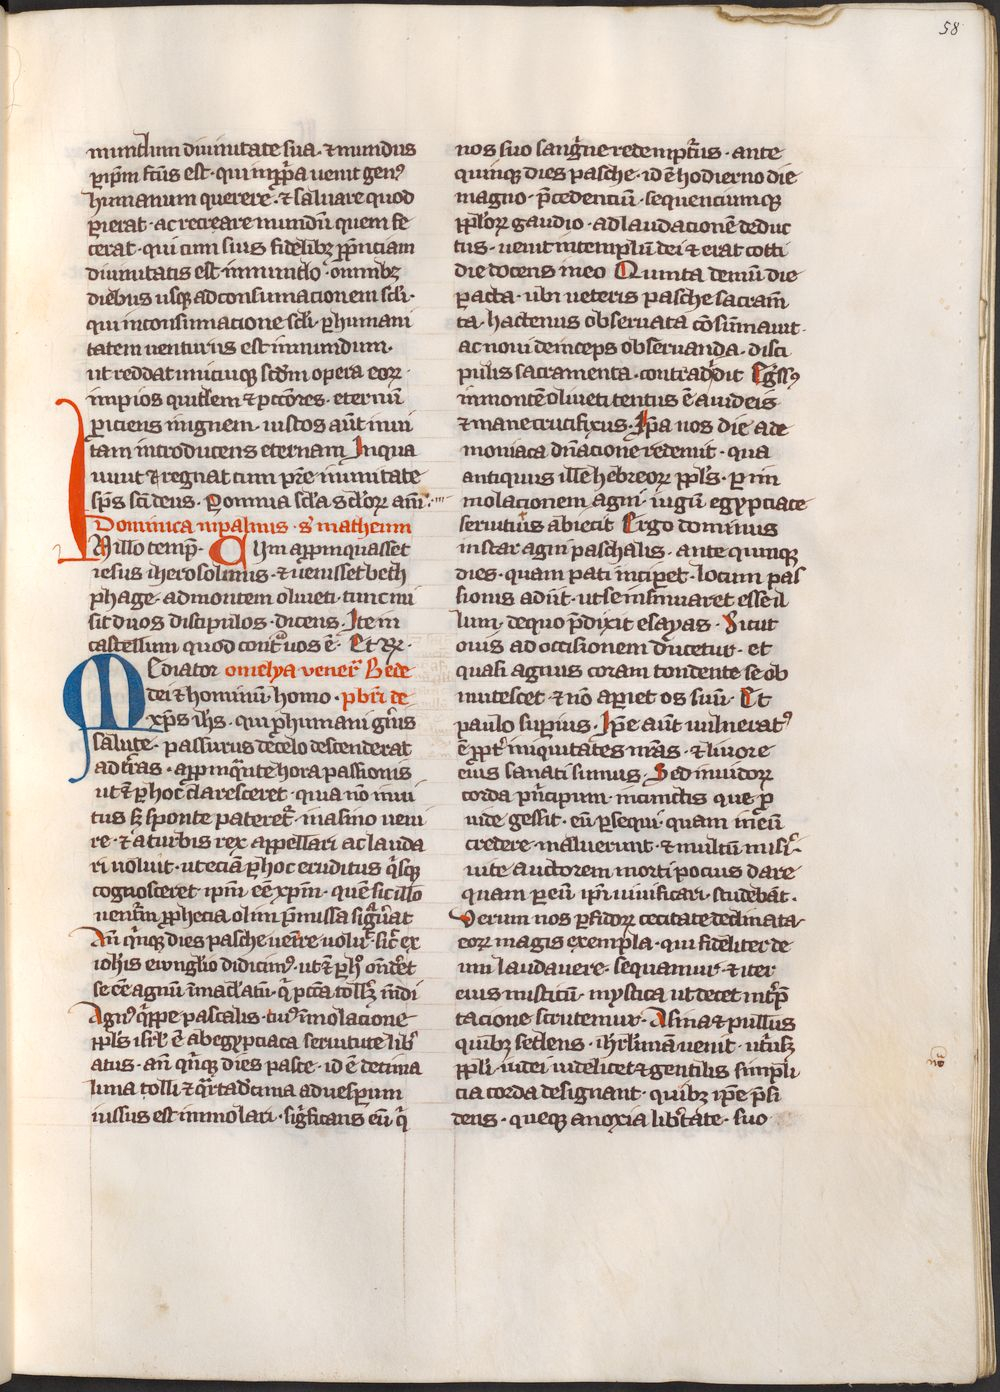 58
mundum diuinitate sua · ⁊ mundus
ꝑ ip̄m fc̄us est · qui in ꝓp̄a uenit genꝰ
humanum querere · ⁊ saluare quod
ꝑierat · ac recreare mundū quem fe
cerat · qui cum suis fidelibꝫ p̄n̄ciam
diuinitatis est in mundo · omnibꝫ
diebus usqꝫ ad consumacionem sc̄li ·
qui in consumacione sc̄li · ꝑ humani
tatem uenturus est in mundum ·
ut reddat unicuiqꝫ scd̄m opera eoꝝ ·
impios quidem ⁊ pctōres · eternū
ꝑiciens in ignem · iustos aūt in ui
tam introducens eternam In qua
uiuit ⁊ regnat cum pr̄e in unitate
sp̄s sc̄i deus · Per omnia sc̄la sc̄loꝝ am̄ ·
Dominica in palmis · s̄ matheum
In illo temp̄ · Cum appropinquasset
iesus iherosolimis · ⁊ uenisset beth
phage · ad montem oliueti · tunc mi
sit duos discipulos · dicens · Ite in
castellum quod cont̄ uos ē · Et Rꝝ ·
Mediator omelya vener̄ Bede
dei ⁊ hominū homo · pbr̄i de
xp̄s ih̄s · qui ꝓ humani gn̄is
salute · passurus de celo descenderat
ad t̄ras · appinq̄nte hora passionis
ut ⁊ ꝑ hoc claresceret · quia nō inui
tus sꝫ sponte pateret̄ · in asino ueni
re · ⁊ a turbis rex appellari ac lauda
ri uoluit · ut eciā ꝑ hoc eruditus q̄sqꝫ
cognosceret ip̄m eē xp̄m · quē sic illo
uentūm ꝓphecia olim p̄missa sig̅uat
An̄ q̄nqꝫ dies pasche ueīre uoluit · sic̄ ex
ioh̄is ewnglio didicimꝰ · ut ⁊ ꝑ hͦ on̄deret
se eē agnū īmac̄latū · q̄ pcc̄a tolleꝫ mūdi
Agnꝰ q̄ppe pascalis · cuiꝰ īmolacione
ppl̄s isrl̄ ē ab egypciaca seruitute lib̄
atus · an̄ q̄nqꝫ dies pasce · id ē decima
luna tolli ⁊ q̄rtadecima ad uesꝑum
iussus est immolari · sig̅ficans eū q̄
nos suo sangͥne redempt̄us · ante
quinqꝫ dies pasche · id ē hodierno die
magno · p̄cedenciū · sequenciumqꝫ
ppl̄oꝝ gaudio · ad laudacionē deduc
tus · uenit in templū dei ⁊ erat cotti
die docens in eo Quinta demū die
ꝑacta · ubi ueteris pasche sacram̄
ta · hactenus obseruata cōsūmauit ·
ac noui deinceps obseruanda · disci
pulis sacramenta · contradidit Eg̅ssꝰ
in montē oliueti tentus ē a iudeis
⁊ mane crucifixus · Ip̄a nos die a de
moniaca dn̄acione redemit · qua
antiquus ille hebreoꝝ ppl̄s · ꝑ im
molacionem agni · iugū egypciace
seruitutis abiecit Ergo dominus
instar agni paschalis · ante quinqꝫ
dies · quam pati inciꝑet · locum pas
sionis adiit · ut se insinuaret esse il
lum · de quo p̄dixit esayas · Sicut
ouis ad occisionem ducetur · et
quasi agnus coram tondente se ob
mutescet ⁊ nō aꝑiet os suū · Et
paulo suꝑius · Ip̄e aūt uulneratꝰ
ē ꝓpt̄ iniquitates nr̄as · ⁊ liuore
eius sanati sumus · Sed inuidoꝝ
corda pͥncipum · incundis que ꝓ
uide gessit · eū ꝑsequi quam in eū
credere maluerunt · ⁊ multū misͥ ·
uite auctorem morti pocius dare
quam ꝑ eū ip̄i uiuificari studebāt ·
Verum nos ꝑfidoꝝ cecitate declinata ·
eoꝝ magis exempla · qui fideliter de
um laudauere · sequamur · ⁊ iter
eius misticū · mystica ut decet int̄p̄
tacione scrutemur · Asina ⁊ pullus
quibꝫ sedens · ih̄rlīmā uenit · ut̄usqꝫ
ppl̄i · iudei uidelicet ⁊ gentilis simpli
cia corda designant · quibꝫ ip̄e p̄si
dens · queqꝫ a noxia lib̄tate · suo